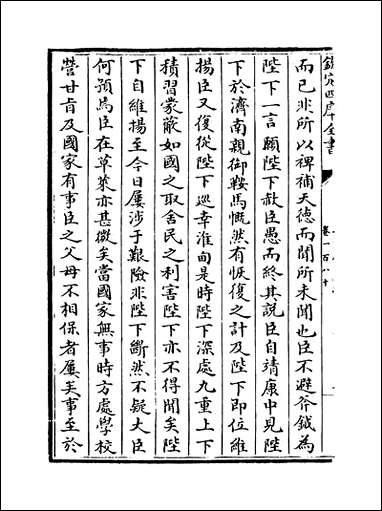 欽定四庫全書
卷一百八十
而已非所以裨補天德而聞所未聞也臣不避斧鉞為
陛下一言願陛下赦臣愚而終其説臣自靖康中見陛
下於濟南親御鞍馬慨然有恢復之計及陛下即位維
揚臣又復從陛下巡幸淮甸是時陛下深處九重上下
積習蒙蔽如國之取舍民之利害陛下亦不得聞矣陛
下自維揚至今日屢涉于艱險非陛下斷然不疑大臣
何預焉臣在草萊亦甚微矣當國家無事時方處學校
營甘旨及國家有事臣之父母不相保者屢矣事至於